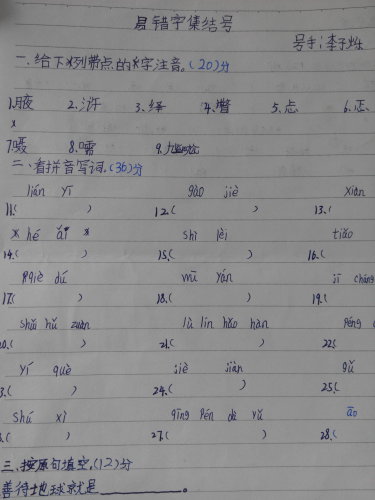 易错字集结号
号手:李子烁
一、给下列带点的字注音。(20)分
1.腋 2.浒 3.绎 4. 5.忐 6.
7.嗫 8.嚅 9.
二、看拼音写词.(36)分
lián yī gào jiè xiān
11.( ) 12.( ) 13.(
hé ǎi shì lèi tiǎo
14.( ) 15.( ) 16.(
qiè dú mù yán jī cháng
17.( ) 18.( ) 19.(
shǔ hǔ zuàn lù lín hǎo hàn péng
20.( ) 21.( ) 22.(
yí què jiè jiàn gǔ
3.( ) 24.( ) 25.(
shú xī qīng pén dà yǔ āo
( ) 27.( ) 28.(
三、按原句填空.(12)分
善待地球就是________。